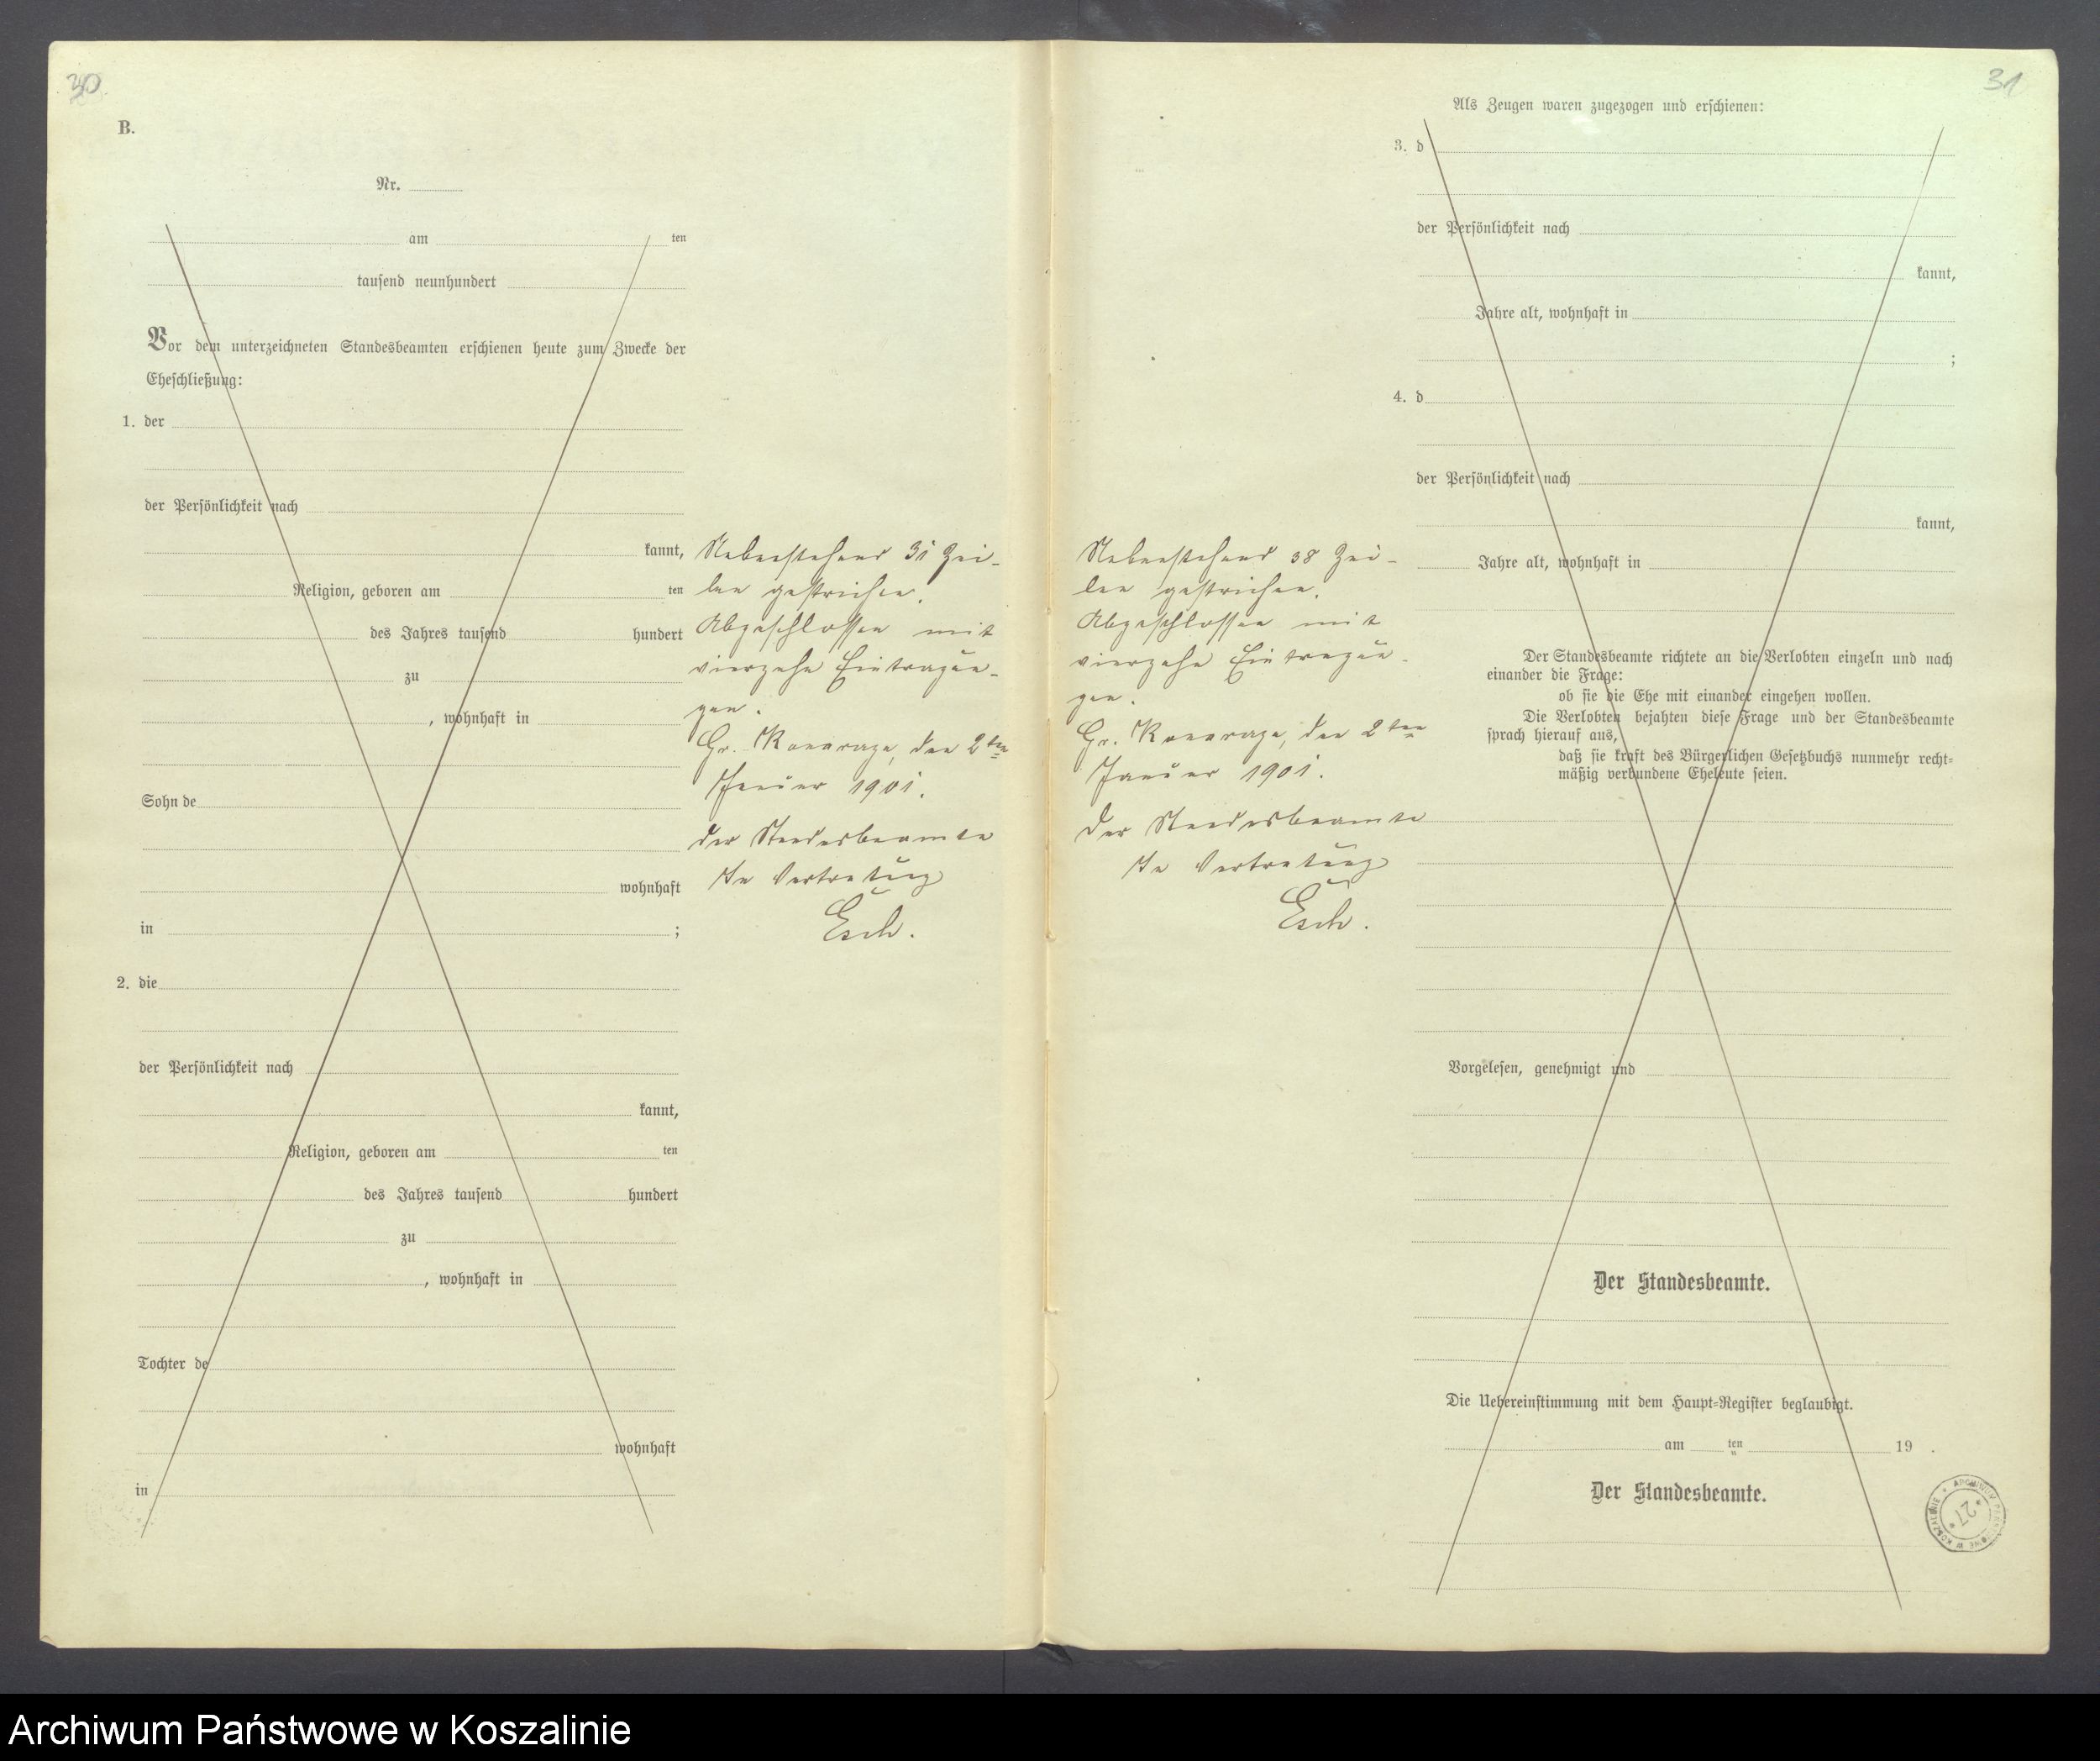 30
B.
Nr.
am ten
tausend neunhundert
Vor dem unterzeichneten Standesbeamten erschienen heute zum Zwecke der
Eheschließung:
1. der
der Persönlichkeit nach
kannt,
Religion, geboren am ten
des Jahres tausend hundert
zu
, wohnhaft in
Sohn de
wohnhaft
in ;
2. die
der Persönlichkeit nach
kannt,
Religion, geboren am ten
des Jahres tausend hundert
zu
, wohnhaft in
Tochter de
wohnhaft
in
Nebenstehend 31 Zei-
len gestrichen.
Abgeschlossen mit
vierzehn Eintragun-
gen.
Gr. den 2ten
Januar 1901.
Der Standesbeamte
In Vertretung
Esch.
31
Nebenstehend 38 Zei-
len gestrichen.
Abgeschlossen mit
vierzehn Eintragun-
gen.
Gr. den 2ten
Januar 1901.
Der Standesbeamte
In Vertretung
Esch.
Als Zeugen waren zugezogen und erschienen:
3. d
der Persönlichkeit nach
kannt,
Jahre alt, wohnhaft in
;
4. d
der Persönlichkeit nach
kannt,
Jahre alt, wohnhaft in
Der Standesbeamte richtete an die Verlobten einzeln und nach
einander die Frage:
ob sie die Ehe mit einander eingehen wollen.
Die Verlobten bejahten diese Frage und der Standesbeamte
sprach hierauf aus,
daß sie kraft des Bürgerlichen Gesetzbuchs nunmehr recht-
mäßig verbundene Eheleute seien.
Vorgelesen, genehmigt und
Der Standesbeamte.
Die Uebereinstimmung mit dem Haupt-Register beglaubigt.
am ten 19 .
Der Standesbeamte.
ARCHIWUM PAŃSTWOWE W KOSZALINIE
* 27 *
Archiwum Państwowe w Koszalinie